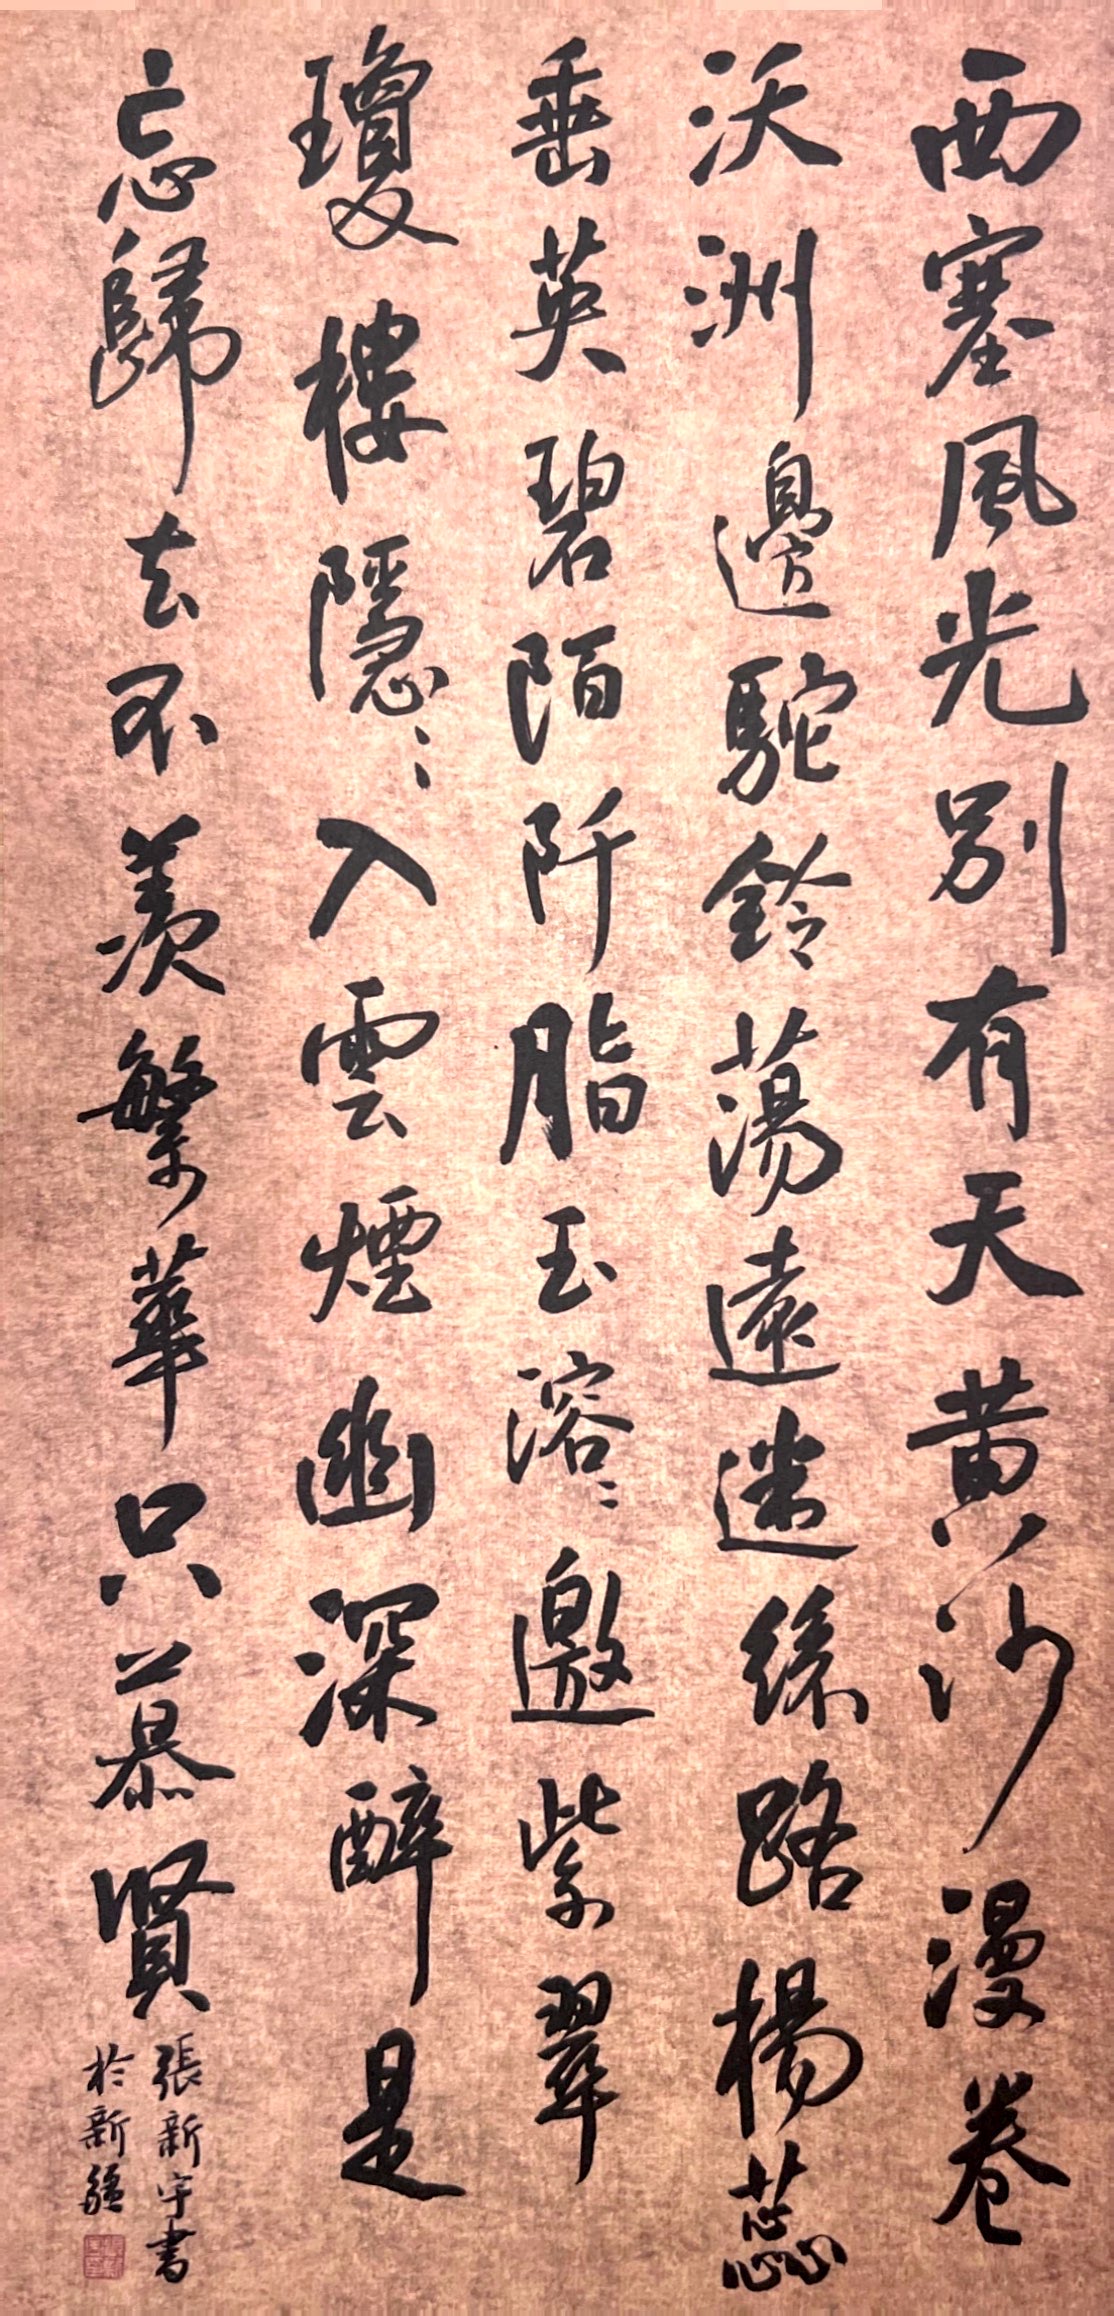 西塞風光別有天黄沙漫卷
沃洲邊駝鈴蕩遠迷絲路楊蕊
垂英碧陌阡脂玉溶溶邀紫翠
瓊樓隱隱入雲煙幽深醉是
忘歸去不羡繁華只慕賢
張新宇書
於新疆